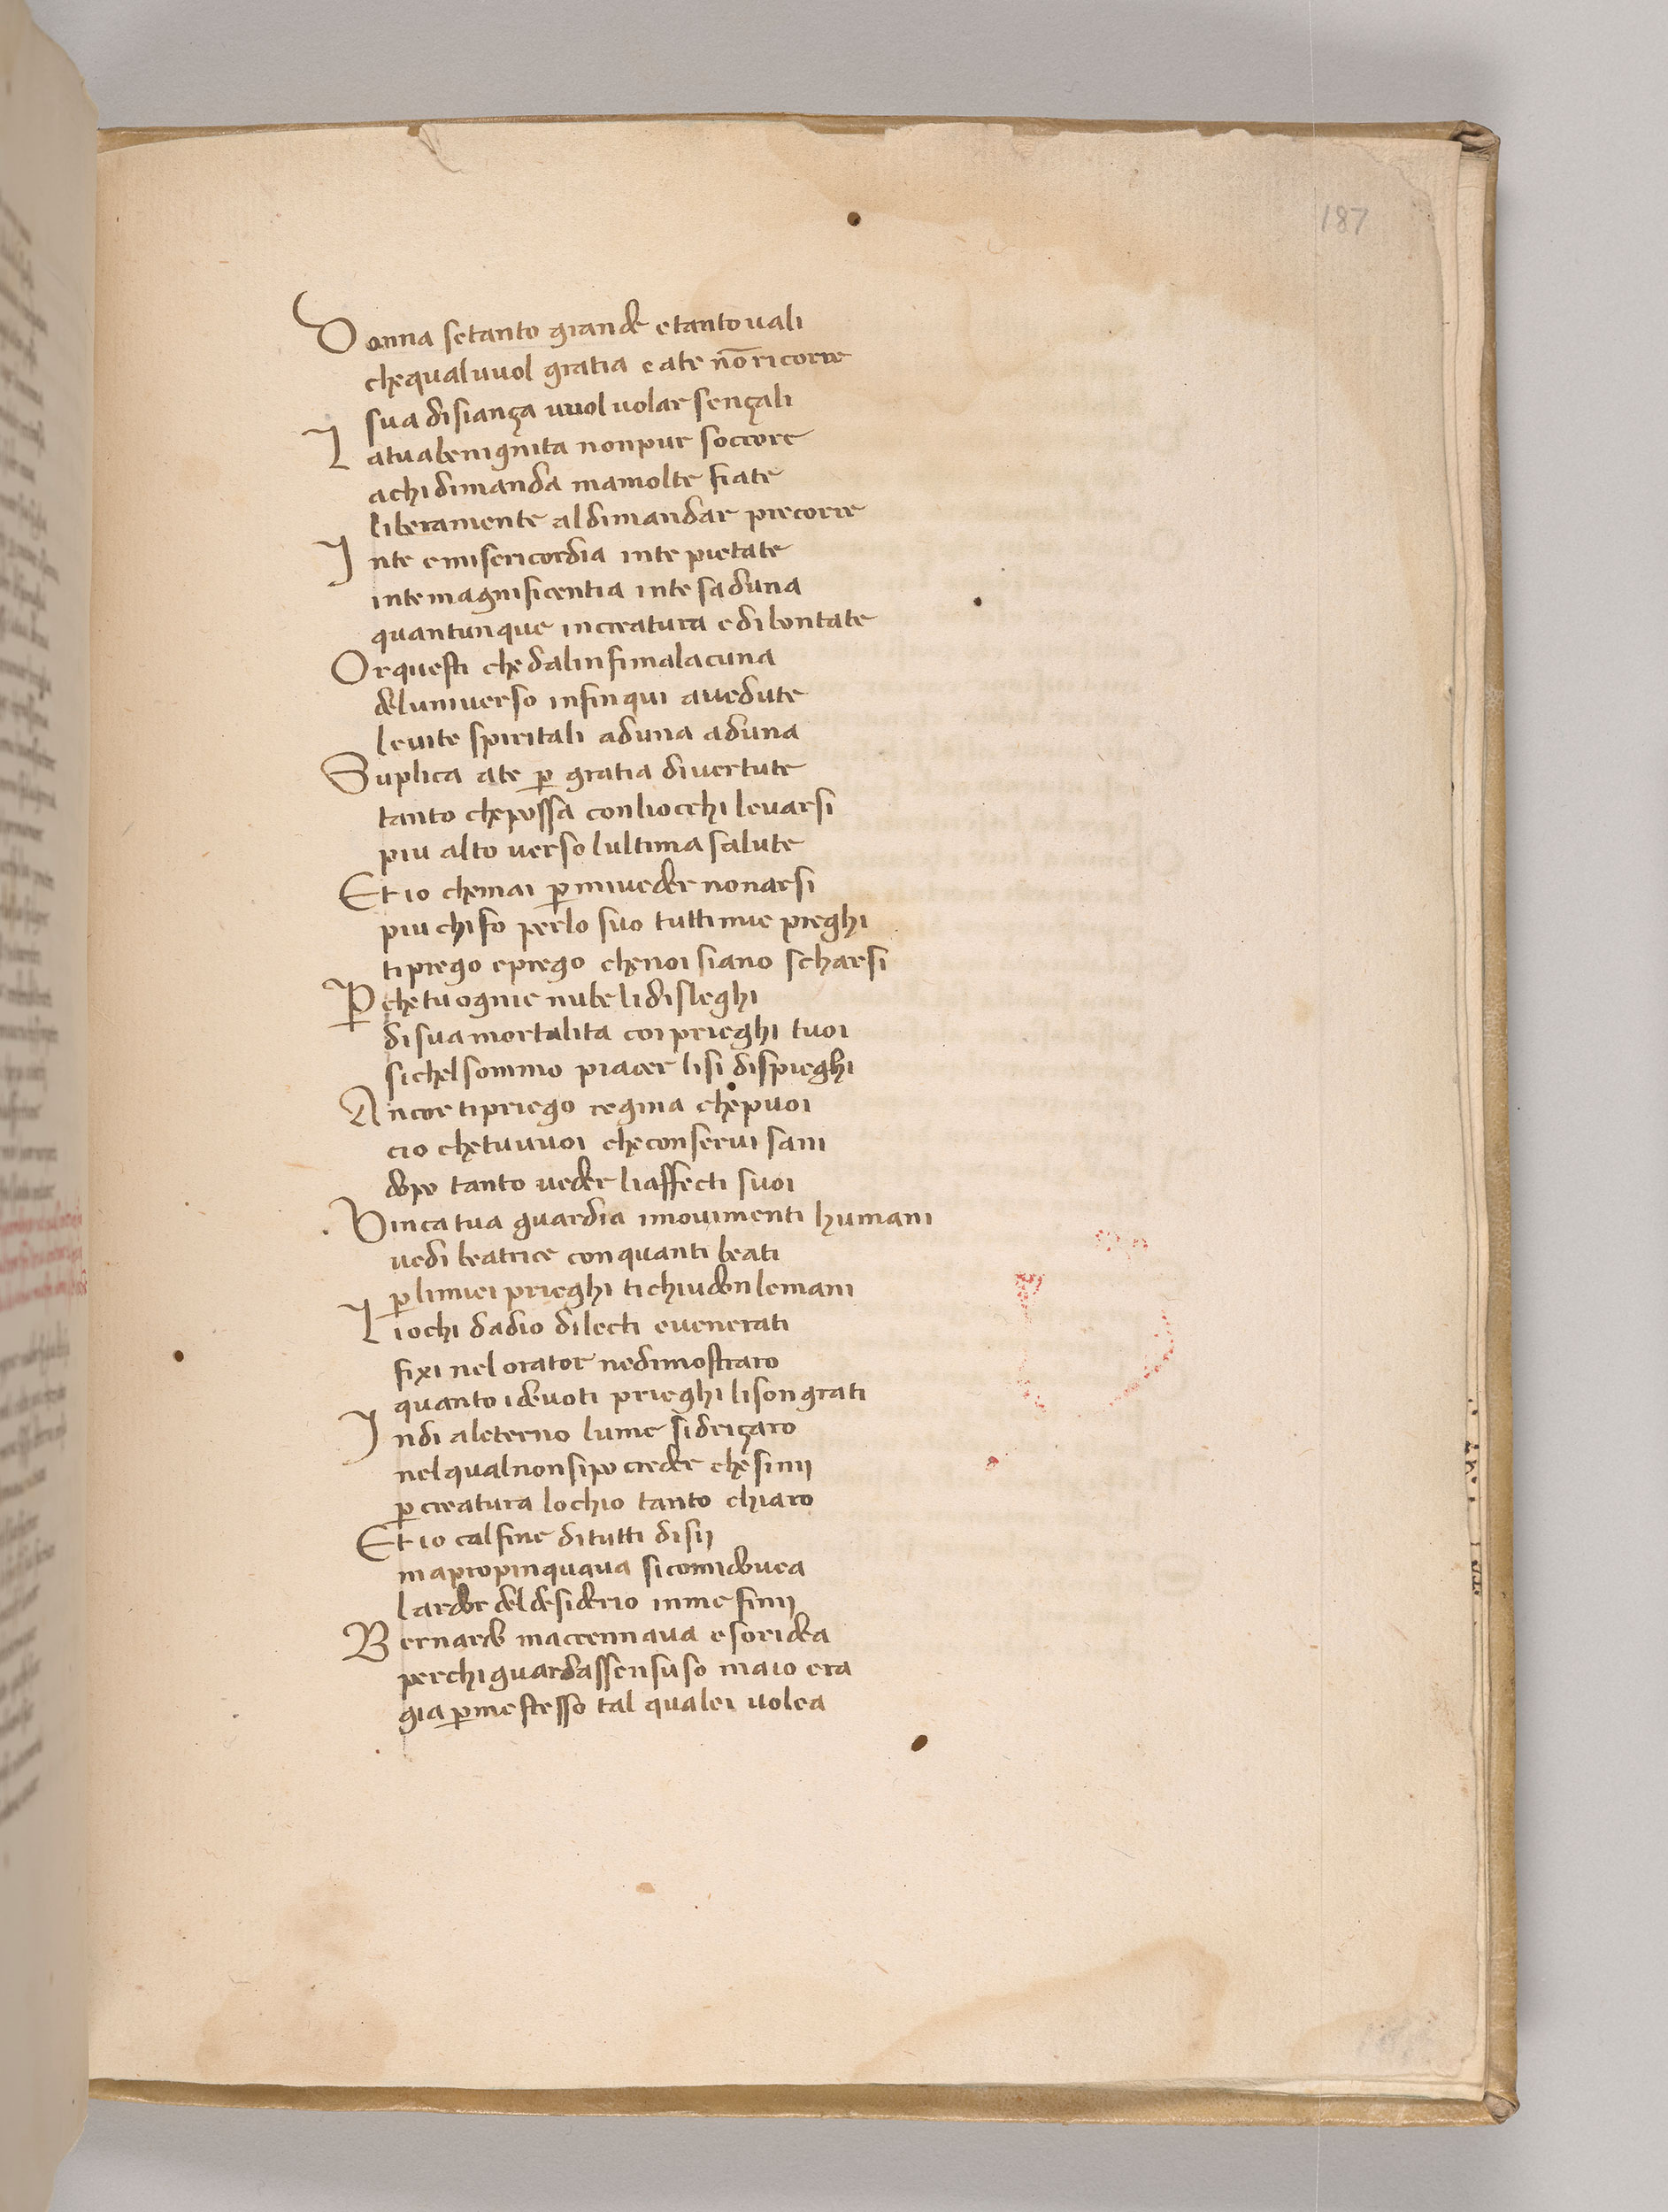 187
Donna setanto grande etantouali
chequaluuol gratia eate nōricorre
sua disiança uuol uolar sençali
L atuabenignita nonpur soccore
achi dimanda mamolte fiate
liberamente aldimandar precorre
I nte emisericordia inte pietate
intemagnificentia inte saduna
quantunque increatura edi bontate
Orquesti che dalinfimalacuna
deluniuerso infin qui auedute
leuite spiritali aduna aduna
Suplica ate ꝑ gratia diuertute
tanto chepossa conliocchi leuarsi
piu alto uerso lultima salute
Et io chemai ꝑ miueder nonarsi
piu chi fo perlo suo tutti mie preghi
tiprego eprego chenoi siano scharsi
P̱ chetuognie nube lidisleghi
disua mortalita coi prieghi tuoi
sichel sommo piacer lisi dispieghi
Ancor tipriego regina chepuoi
cio chetuuuoi checonserui sani
dopo tanto ueder liaffecti suoi
Vinca tua guardia imouimenti humani
uedi beatrice conquanti beati
ꝑ limiei prieghi tichiudon lemani
L iochi dadio dilecti euenerati
fixi nel orator nedimostraro
quanto ideuoti prieghi lisongrati
I ndi aleterno lume sidriçaro
nelqualnonsipo creder chesinij
ꝑ creatura lochio tanto chiaro
Et io calfine ditutti disij
mapropinquaua sicomidouea
lardor deldesiderio inme finij
Bernardo maccennaua esoridea
perchi guardassensuso maio era
gia ꝑmestesso tal qualei uolea